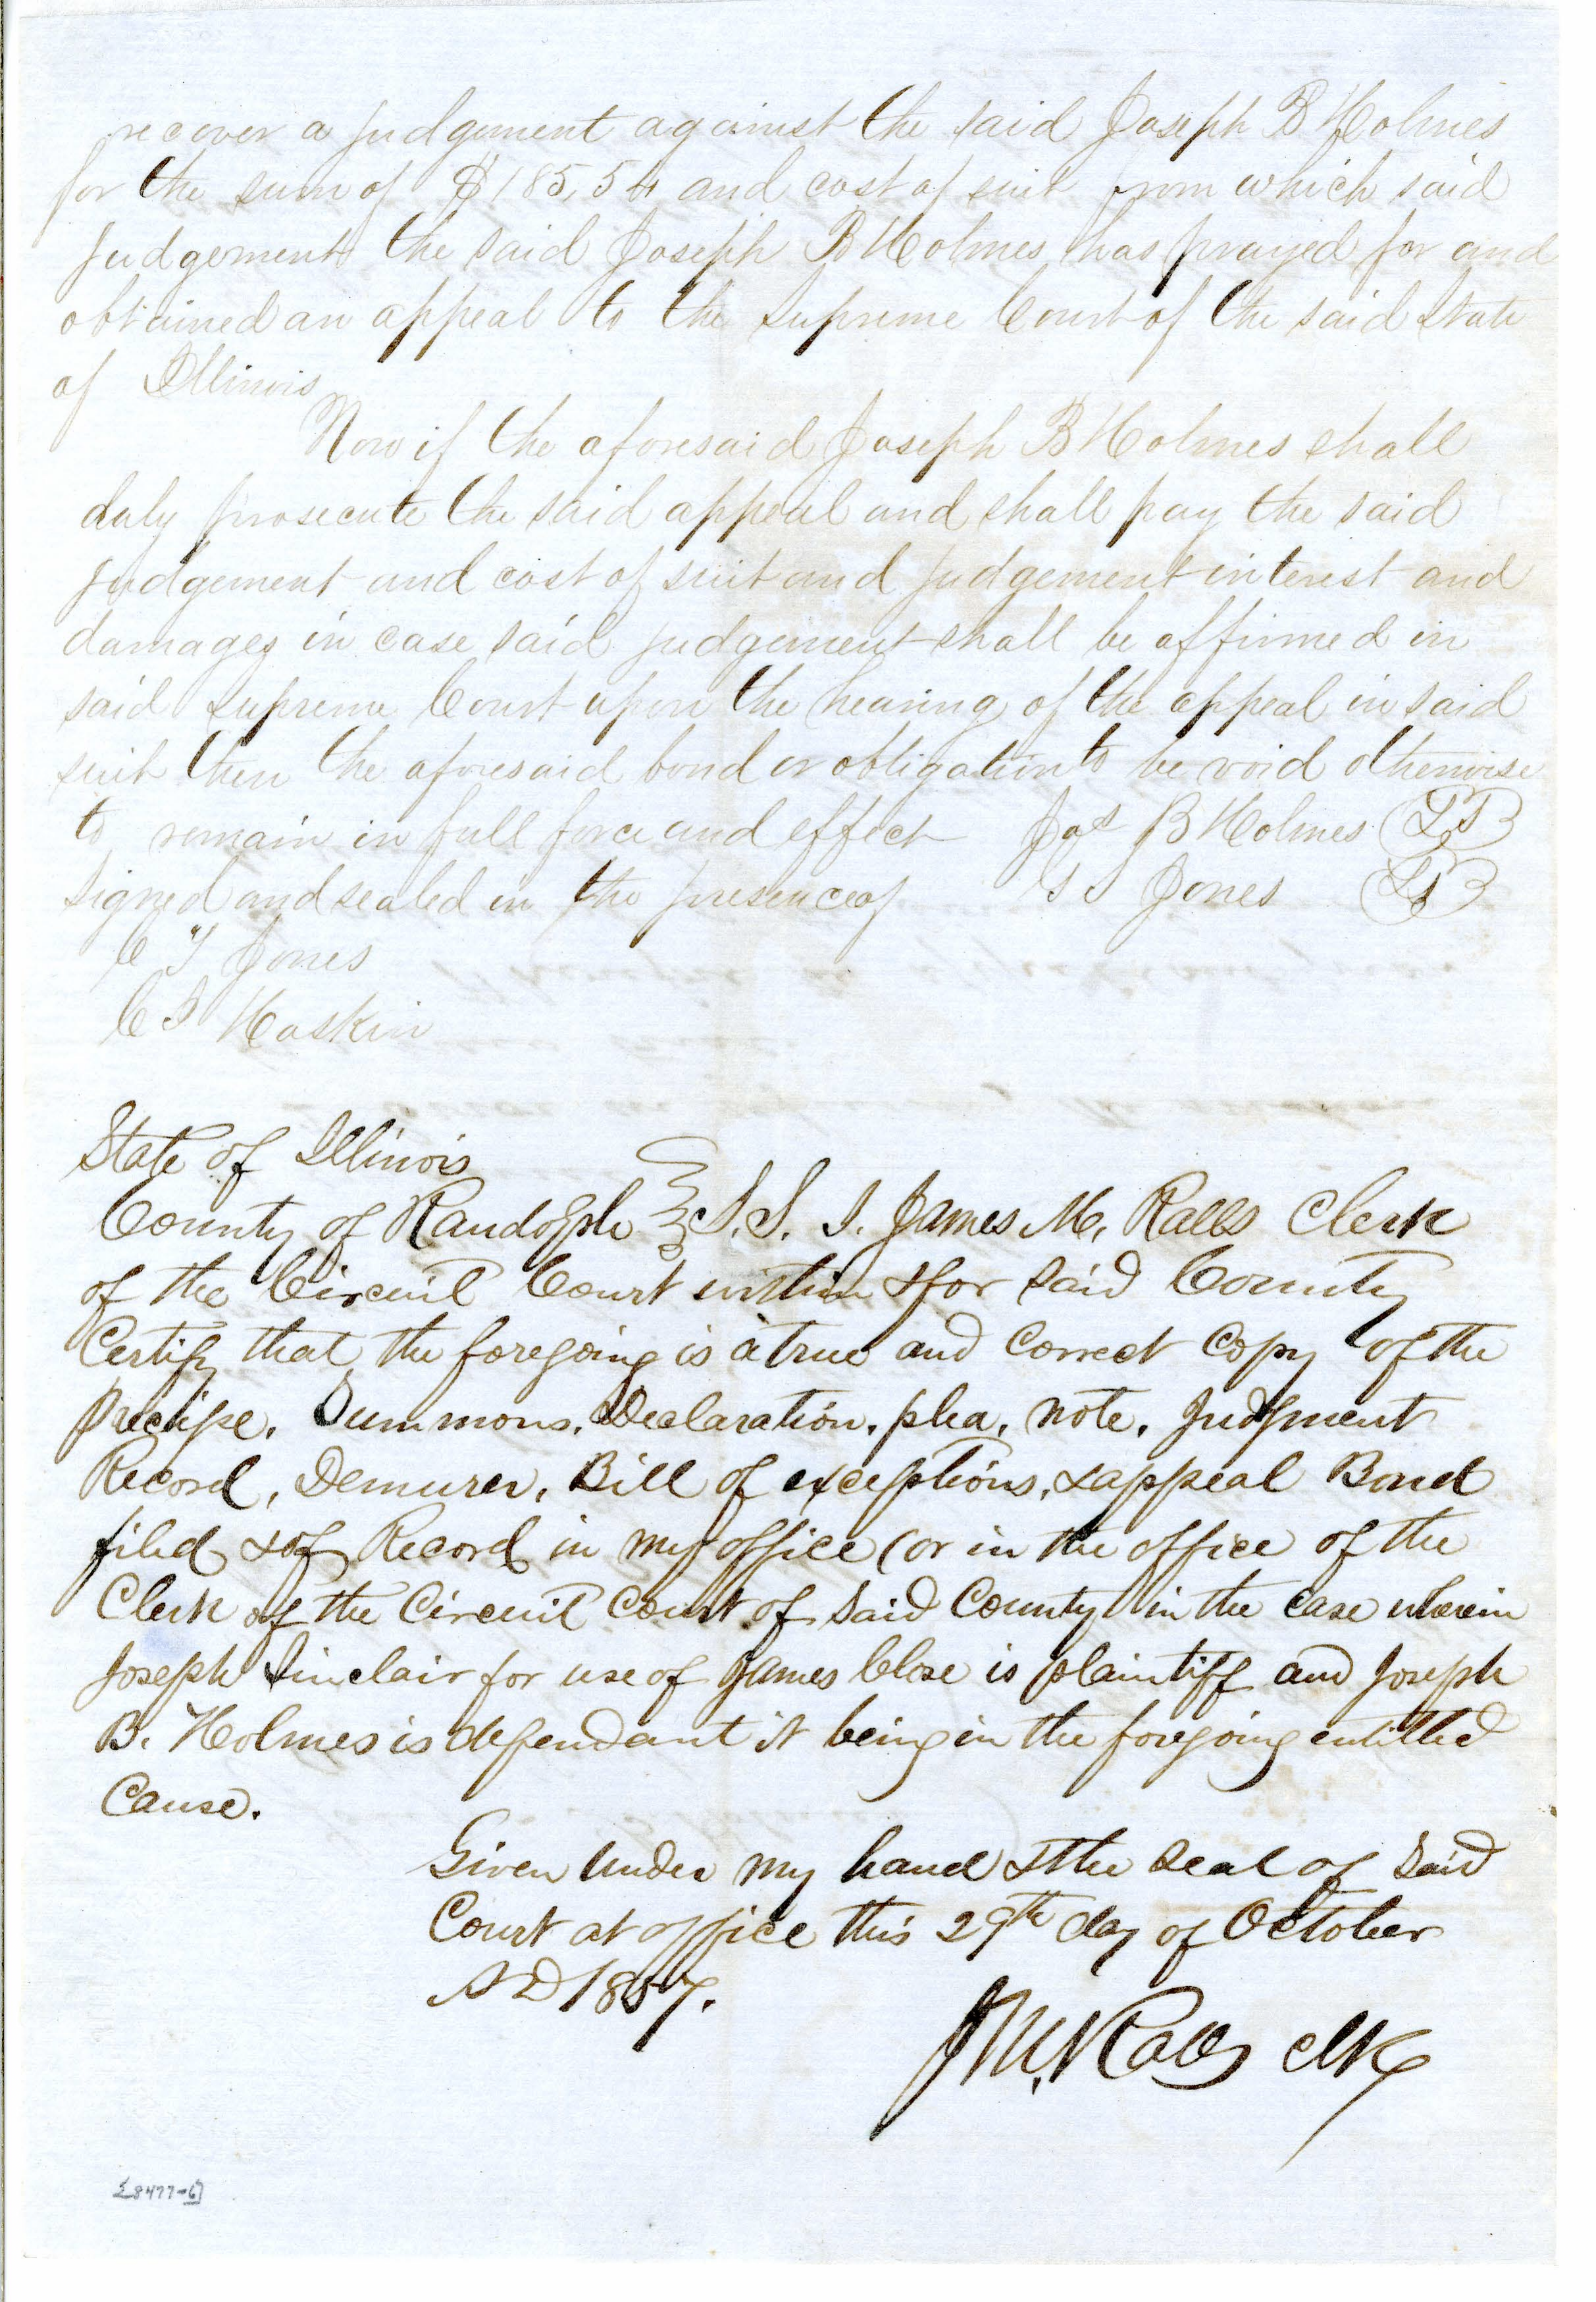 recover a judgement against the said Joseph B Holmes
for the sum of $185,54 and cost of suit from which said
judgement the said Joseph B Holmes has prayed for and
obtained an appeal to the Supreme Court of the said State
of Illinois
Now if the aforesaid Joseph B Holmes shall
duly prosecute the said appeal and shall pay the said
judgement and cost of suit and judgement interest and
damages in case said judgement shall be affirmed in
said supreme Court upon the hearing of the appeal in said
suit then the aforesaid bond or obligation to be void otherwise
to remain in full force and effect Jos B Holmes
signed and sealed in the presence of Jones
C T Jones
Haskin
State of Illinois
County of Randolph S.S. I. James M. Ralls Clerk
of the Circuit Court within & for said County
Certify that the foregoing is a true and Correct Copy of the
Precipe, Summons, Declaration, plea, note, Judgment
Record, Demurer, Bill of exceptions, & appeal Bond
filed & of Record in my office (or in the office of the
Clerk of the Circuit Court of said County in the case wherein
Joseph Sinclair for use of James Close is plaintiff and Joseph
B. Holmes is defendant it being in the foregoing entitled
Cause.
Given under my hand & the seal of said
Court at office this 29th day of October
A D 1857.
J M. Ralls clk
[8477-6]